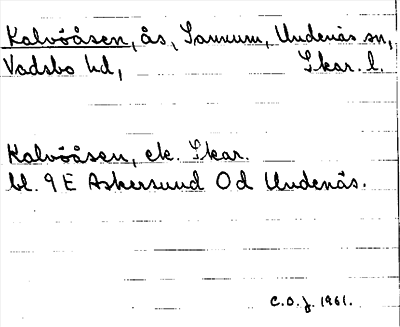 Kalvöåsen, ås, Sannum, Undenäs sn,
Vadsbo hd, Skar. l.
Kalvöåsen, ek. Skar.
bl. 9 E Askersund Od Undenäs.
C.O.J. 1961.